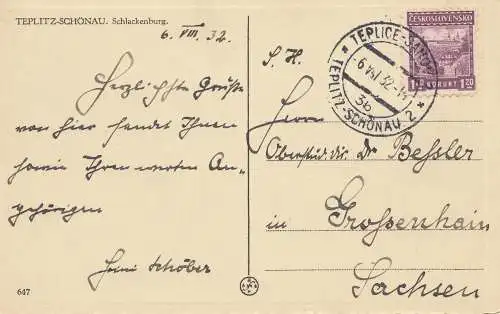 TEPLITZ-SCHÖNAU. Schlackenburg.
6. VIII. 32.
Herzlichste Grüße
von hier sendet Ihnen
sowie Ihren werten An-
gehörigen
Schöber
647
S. H.
Herrn
Oberstud. dir. Dr Bessler
in
Grossenhain
Sachsen
TEPLICE-ŠANOV
TEPLITZ-SCHÖNAU 2
3b
ČESKOSLOVENSKO
1.20 KORUNY 1.20